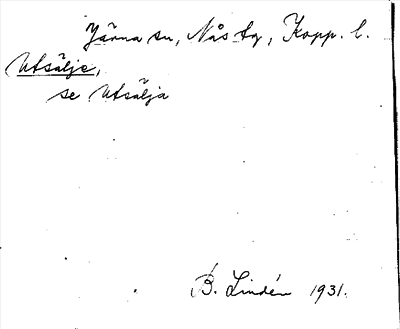 Järna sn, Nås tg, Kopp. l.
Utsälje,
se Utsälja
B. Lindén 1931.